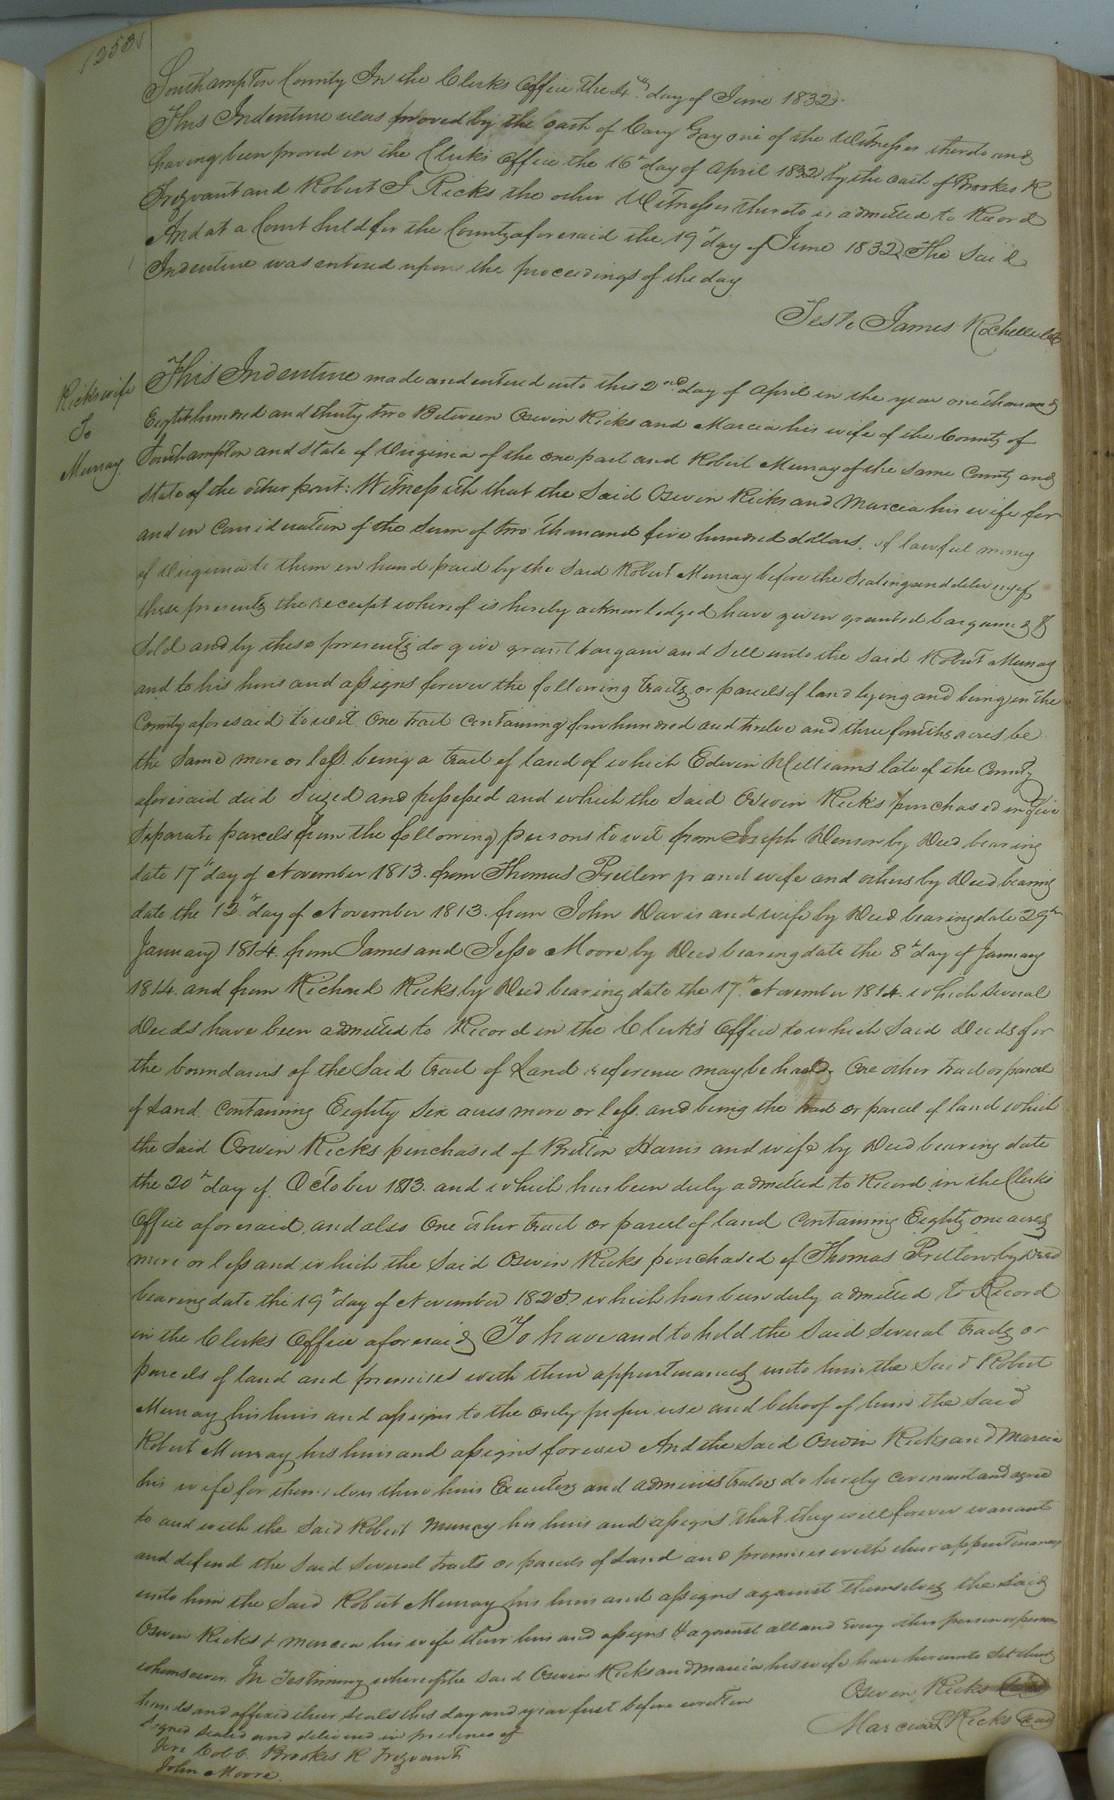 Southampton County In the Clerks Office the 4th day of June 1832.
This Indenture was proved by the oath of Cary Gay one of the Witnesses thereto and
having been proved in the Clerks Office the 16th day of April 1832 by the oath of Brookes R
Trezvant and Robert Ricks the other Witnesses thereto is admitted to Record
And at a Court held for the County aforesaid the 19th day of June 1832 The Said
Indenture was entered upon the proceedings of the day
Teste James Rochelle
Ricks wife
To
Murray
This Indenture made and entered into this 2nd day of April in the year one thousand
Eight hundred and thirty two Between Oswin Ricks and Marcia his wife of the County of
Southampton and State of Virginia of the one part and Robert Murray of the same County and
State of the other part: Witnesseth that the Said Oswin Ricks and Marcia his wife for
and in Consideration of the Sum of two thousand five hundred dollars, of lawful money
of Virginia to them in hand paid by the Said Robert Murray before the Sealing and delivery of
these presents the receipt whereof is hereby acknowledged have given granted bargained &
Sold and by these presents do give grant bargain and Sell unto the Said Robert Murray
and to his heirs and assigns forever the following tracts or parcels of land lying and being in the
County aforesaid to wit One tract Containing four hundred and twelve and three fourths acres be
the Same more or less being a tract of land of which Edwin Williams late of the County
aforesaid died Seized and possessed and which the Said Oswin Ricks purchased in five
Separate parcels from the following persons to wit from Joseph Denson by Deed bearing
date 17th day of November 1813. from Thomas Pretlow jr and wife and others by Deed bearing
date the 12th day of November 1813. from John Davis and wife by Deed bearing date 29th
January 1814. from James and Jesse Moore by Deed bearing date the 8th day of January
1814. and from Richard Ricks by Deed bearing date the 17th November 1814. which Several
Deeds have been admitted to Record in the Clerks Office to which Said Deeds for
the boundaries of the Said tract of Land reference may be had, One other tract or parcel
of Land Containing Eighty Six acres more or less and being the tract or parcel of land which
the Said Oswin Ricks purchased of Britton Harris and wife by Deed bearing date
the 20th day of October 1813. and which has been duly admitted to Record in the Clerks
Office aforesaid, and also One other tract or parcel of land Containing Eighty one acres
more or less and which the Said Oswin Ricks purchased of Thomas Pretlow by Deed
bearing date the 19th day of November which has been duly admitted to Record
in the Clerks Office aforesaid, To have and to hold the Said Several tracts or
parcels of land and premises with their appurtenances unto him the Said Robert
Murray his heirs and assigns to the only proper use and behoof of him the Said
Robert Murray his heirs and assigns forever And the Said Oswin Ricks and Marcia
his wife for themselves their heirs Executors and administrators do hereby covenant and agree
to and with the Said Robert Murray his heirs and assigns that they will forever warrant
and defend the Said Several tracts or parcels of Land and premises with their appurtenances
unto him the Said Robert Murray his heirs and assigns against themselves the Said
Oswin Ricks & Marcia his wife their heirs and assigns & against all and Every other person or persons
whomsoever. In Testimony whereof the Said Oswin Ricks and Marcia his wife have hereunto Set their
hands and affixed their Seals this day and year first before written
Oswin Ricks Seal
Signed Sealed and delivered in presence of
Marcia Ricks Seal
Jere Cobb Brookes R Trezvant
John Moore.